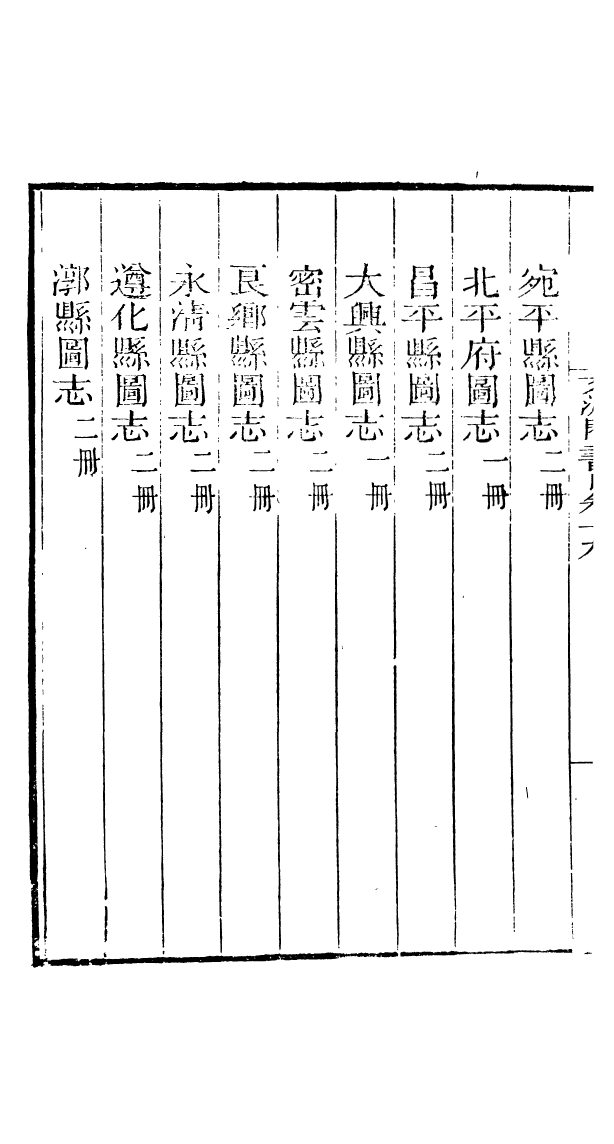 宛平縣圖志二冊
北平府圖志一冊
昌平縣圖志二冊
大興縣圖志一冊
密雲縣圖志二冊
良鄉縣圖志二冊
永清縣圖志二冊
遵化縣圖志二冊
漷縣圖志二冊